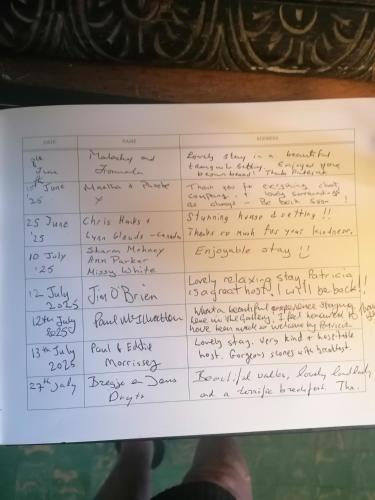 DATE NAME ADDRESS
8th June Malachy and Lovely stay in a beautiful
tranquil setting. Enjoyed your
brown bread! Thanks Patricia
June '25 Martha + Phoebe x Thank you for everything chats
company + lovely surroundings
as always - Be back soon!
25 June '25 Chris Hanks & Lynn - Canada Stunning house & setting!!
Thanks so much for your kindness.
10 July '25 Sharon Mohney Enjoyable stay!!
Ann Parker
Missy White
12 July 2025 Jim O'Brien Lovely relaxing stay, Patricia
is a great host. I will be back!!
12th July 2025 Paul What a beautiful experience staying
here in the I feel honoured to
have been made so welcome by Patricia
13th July 2025 Paul & Eddie Morrissey Lovely stay. Very kind & hospitable
host. Gorgeous scones with breakfast.
27th July Beautiful walks, lovely landlady
and a terrific breakfast.